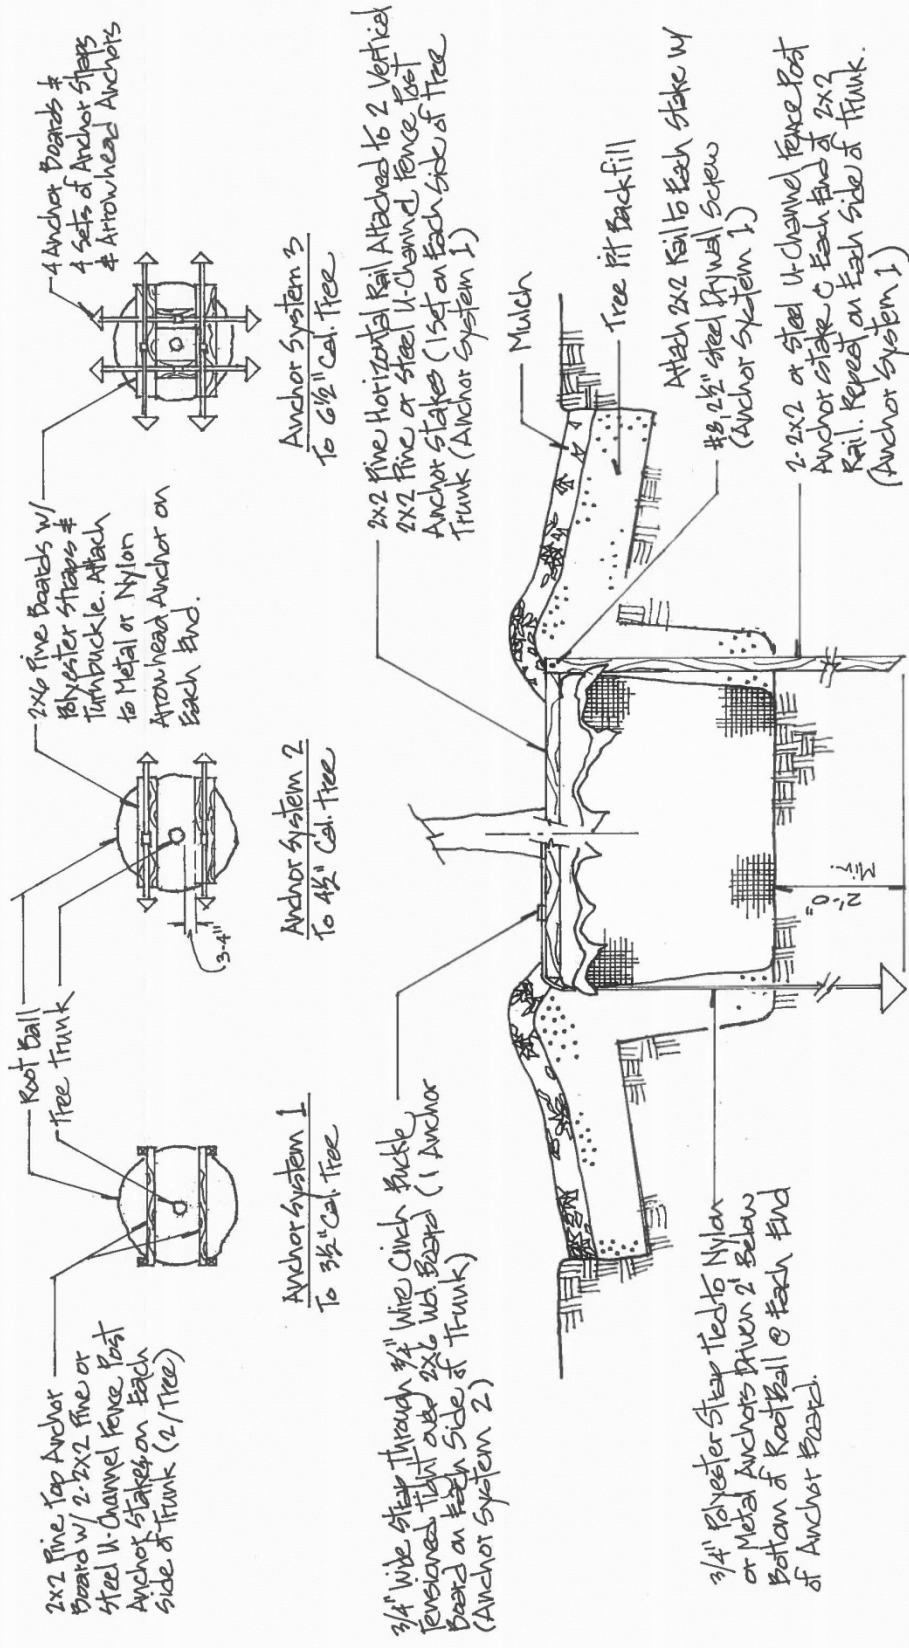 2x2 Pine Top Anchor
Board w/ 2-2x2 Pine or
Steel U-Channel Fence Post
Anchor Stakes on Each
Side of Trunk (2/Tree)
Root Ball
Tree Trunk
2x6 Pine Boards w/
Polyester Straps &
Turnbuckle. Attach
to Metal or Nylon
Arrowhead Anchor on
Each End.
4 Anchor Boards &
4 Sets of Anchor Straps
& Arrowhead Anchors
3-4"
Anchor System 1
To 3½" Cal. Tree
Anchor System 2
To 4½" Cal. Tree
Anchor System 3
To 6½" Cal. Tree
3/4" Wide Strap Through 3/4" Wire Cinch Buckle
Tensioned Tight over 2x6 Wd. Board (1 Anchor
Board on Each Side of Trunk)
(Anchor System 2)
2x2 Pine Horizontal Rail Attached to 2 Vertical
2x2 Pine or Steel U-Channel Fence Post
Anchor Stakes (1 Set on Each Side of Tree
Trunk (Anchor System 1)
Mulch
Tree Pit Backfill
Attach 2x2 Rail to Each Stake w/
#8, 2½" Steel Drywall Screw
(Anchor System 1)
2-2x2 or Steel U-Channel Fence Post
Anchor Stake @ Each End of 2x2
Rail. Repeat on Each Side of Trunk.
(Anchor System 1)
3/4" Polyester Strap Tied to Nylon
or Metal Anchors Driven 2' Below
Bottom of Root Ball @ Each End
of Anchor Board.
2'-0"
Min.